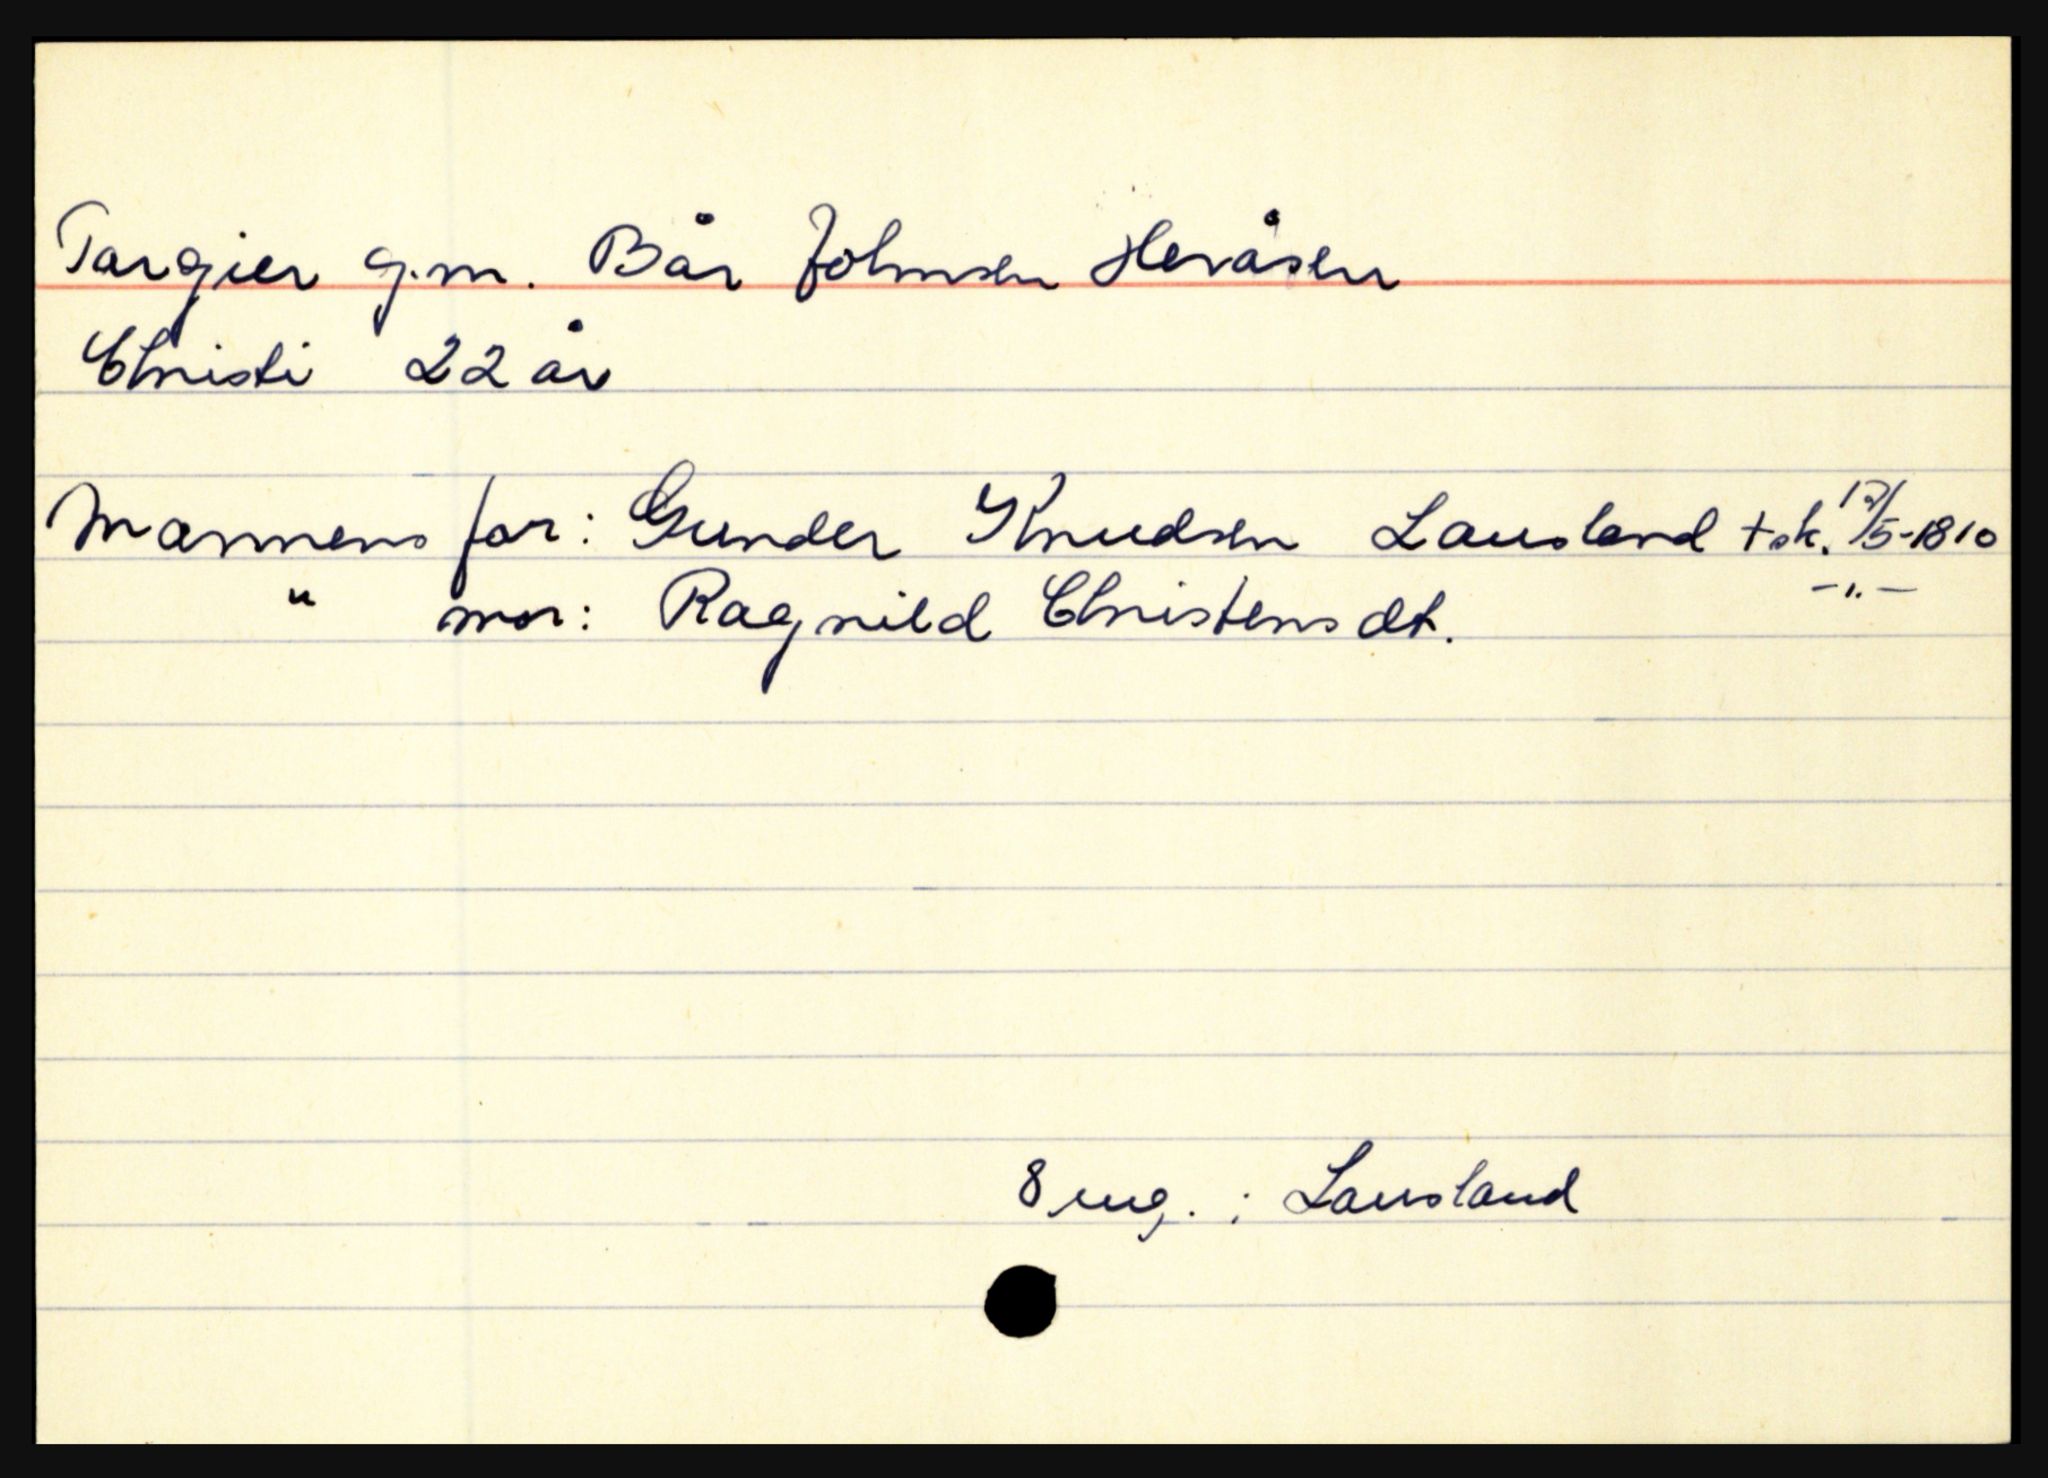 Targier g.m. Bår Johnsen Heråsen
Christi 22 år
Mannens far: Gunder Knudsen Lausland + sk. 12/5-1810
" mor: Ragnild Christensdt. -"-
8 ug. : Lausland